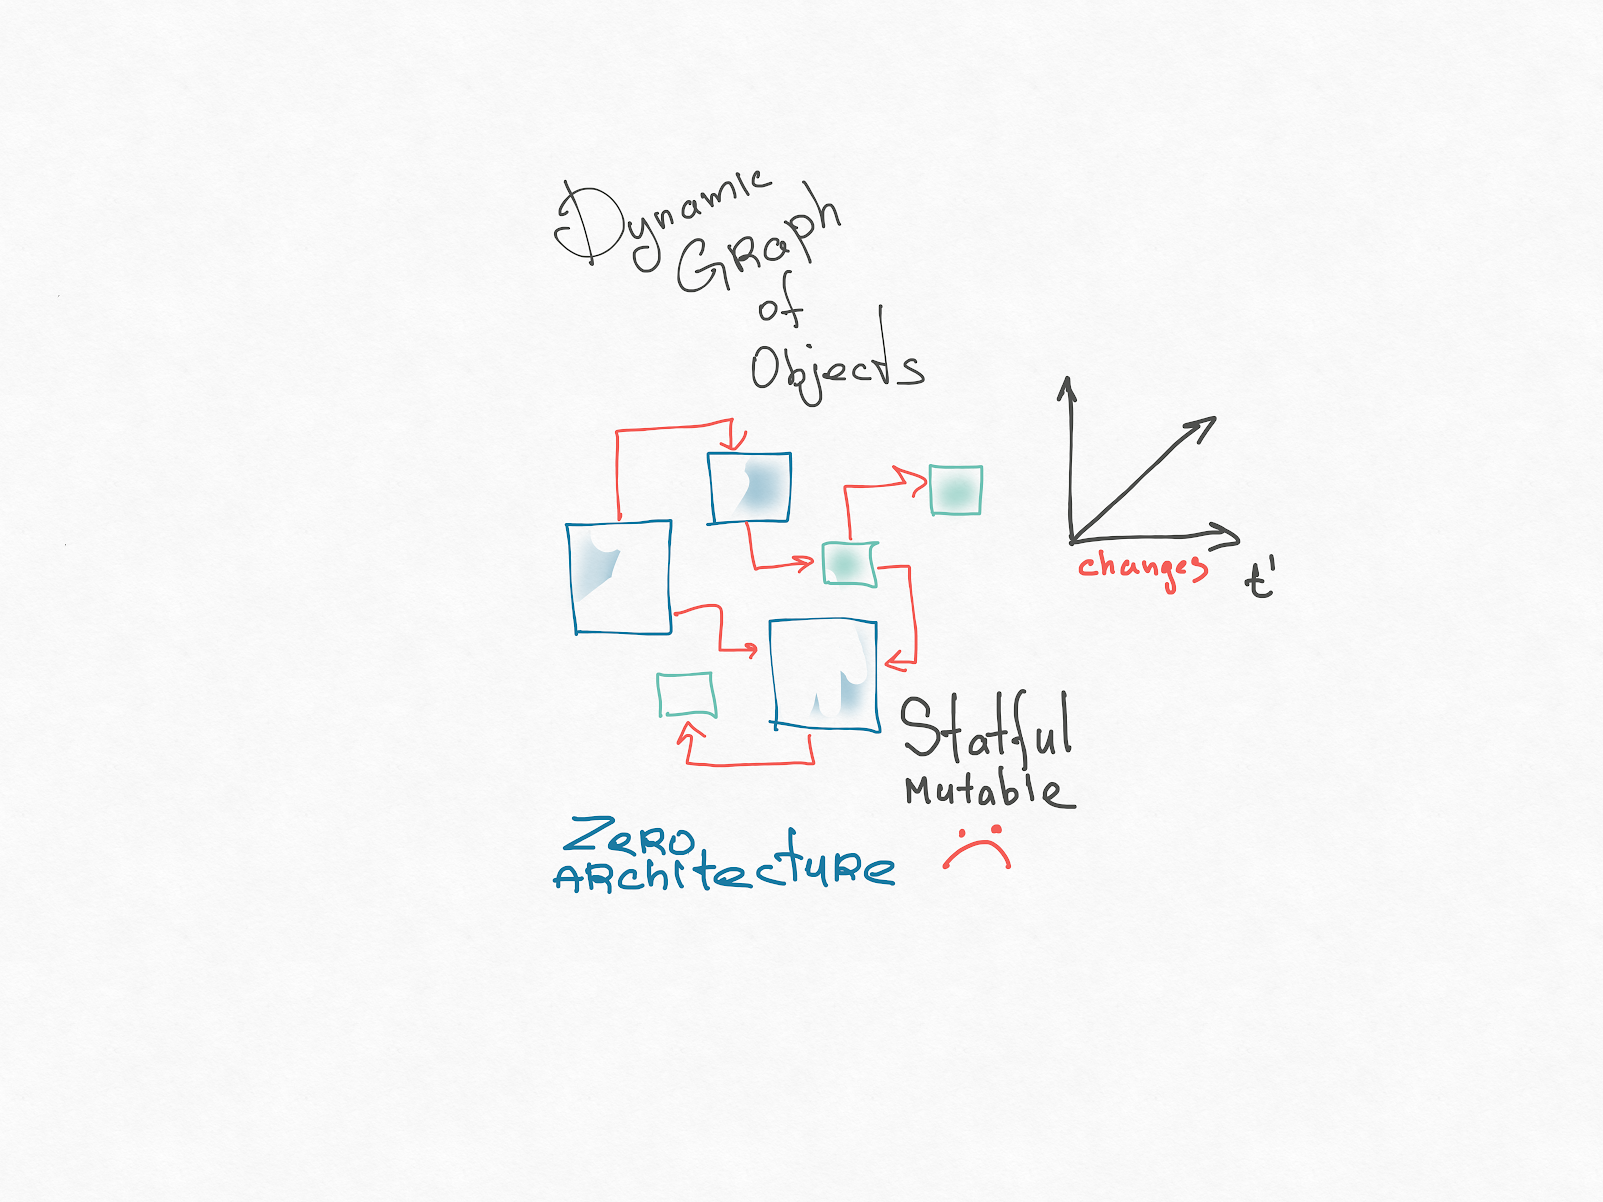 Dynamic
Graph
of
Objects
changes
t'
Statful
Mutable
Zero
Architecture